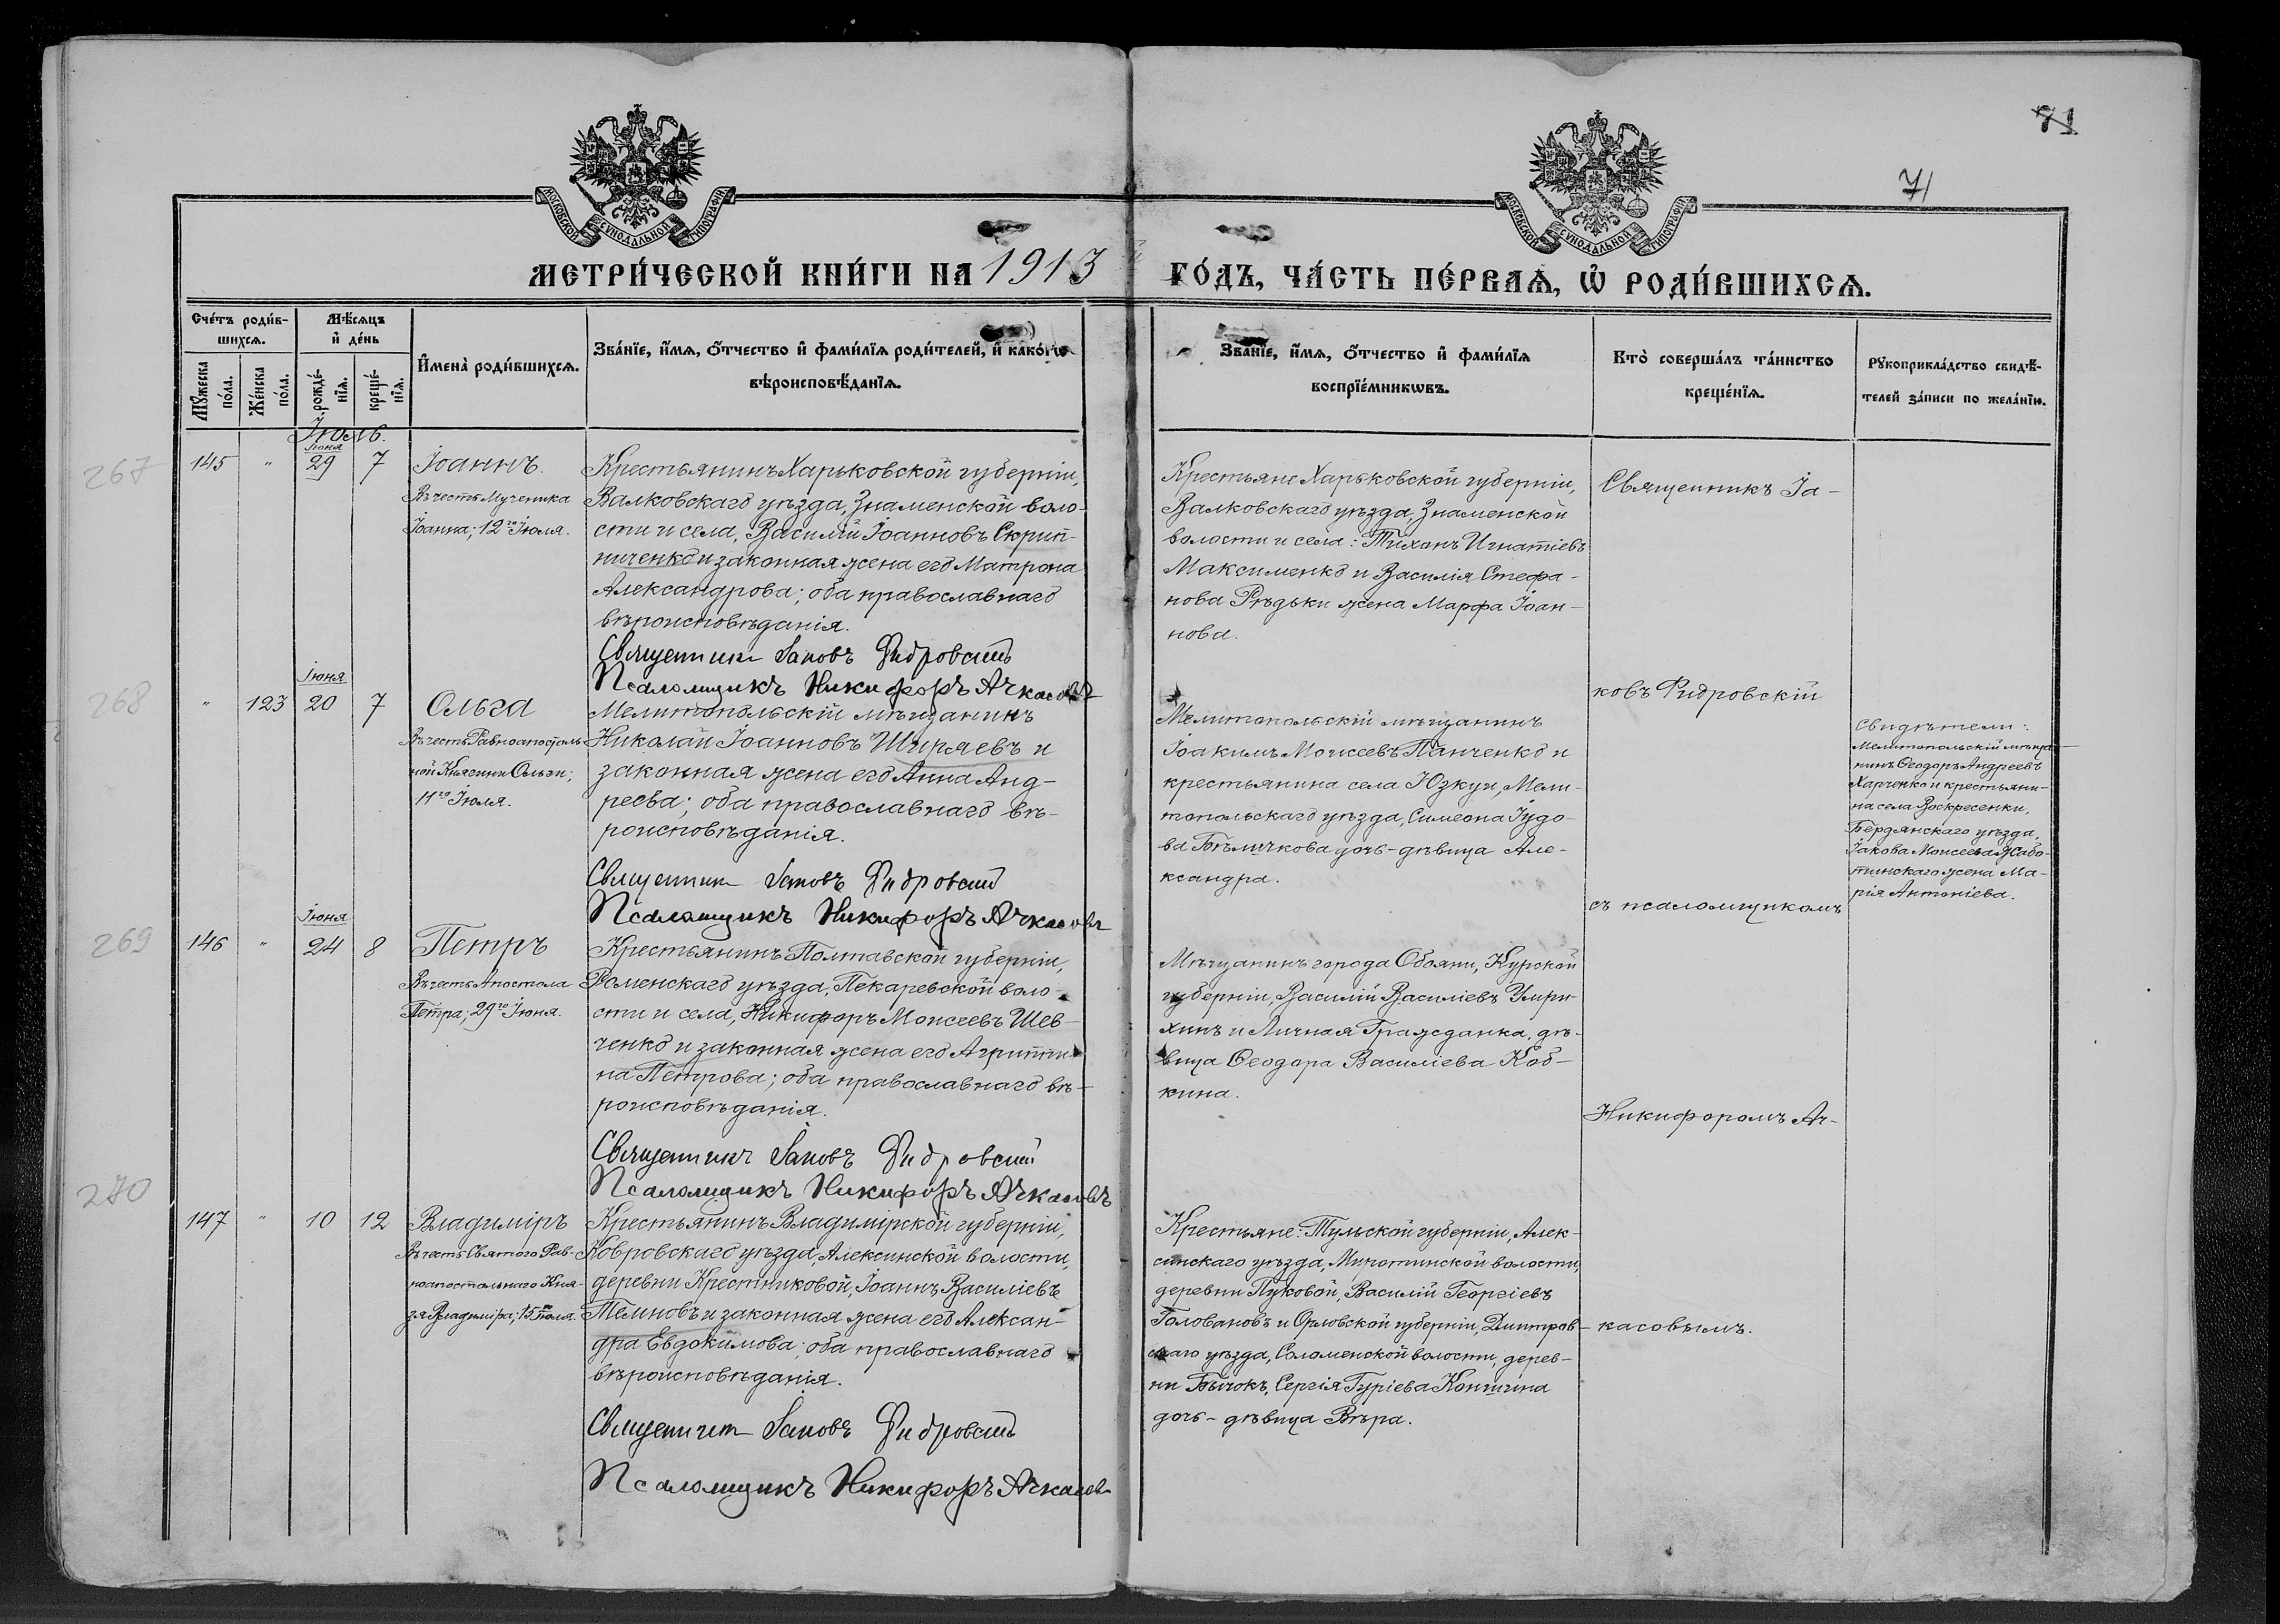 71
71
МОСКОВСКОЙ СѴНОДАЛЬНОЙ ТИПОГРАФІИ
МОСКОВСКОЙ СѴНОДАЛЬНОЙ ТИПОГРАФІИ
МЕТРИ́ЧЕСКОЙ КНИ́ГИ НА 1913 ГО́ДЪ, ЧА́СТЬ ПЕ́РВАѦ, Ѡ҆ РОДИ́ВШИХСѦ.
Сче́тъ роди́в-
шихсѧ.
Мѣ́сѧцъ
и҆ де́нь
Мꙋ́жеска
по́ла.
Же́нска
по́ла.
рожде́-
нїѧ.
креще́-
нїѧ.
И҆мена̀ роди́вшихсѧ.
Зва́нїе, и҆́мѧ, ѻ҆́тчество и҆ фами́лїѧ роди́телей, и҆ како́гѡ
вѣроисповѣ́данїѧ.
Зва́нїе, и҆́мѧ, ѻ҆́тчество и҆ фами́лїѧ
воспрїе́мникѡвъ.
Кто̀ соверша́лъ та́инство
креще́нїѧ.
Рꙋкоприкла́дство свидѣ́-
телей за́писи по жела́нїю.
Іюль.
267
145 " Іюня 29 7
Іоаннъ.
Въ честь Мученика
Іоанна; 12го Іюля.
Крестьянинъ Харьковской губерніи,
Валковскаго уѣзда, Знаменской воло-
сти и села, Василій Іоанновъ Скрип-
ниченко и законная жена его Матрона
Александрова; оба православнаго
вѣроисповѣданія.
Священникъ Іаковъ Фидровскій
Псаломщикъ Никифоръ Ачкасовъ
Крестьяне Харьковской губерніи,
Валковскаго уѣзда, Знаменской
волости и села: Тихонъ Игнатіевъ
Максименко и Василія Стефа-
нова Рѣдьки жена Марфа Іоан-
нова.
Священникъ Іа-
268
" 123 Іюня 20 7
Ольга
Въ честь Равноапостоль-
ной Княгини Ольги;
11го Іюля.
Мелитопольскій мѣщанинъ
Николай Іоанновъ Ширяевъ и
законная жена его Анна Анд-
реева; оба православнаго вѣ-
роисповѣданія.
Священникъ Іаковъ Фидровскій
Псаломщикъ Никифоръ Ачкасовъ
Мелитопольскій мѣщанинъ
Іоакимъ Моисеевъ Панченко и
крестьянина села Юзкуи, Мели-
топольскаго уѣзда, Симеона Іудо-
ва Бѣличкова дочь-дѣвица Але-
ксандра.
ковъ Фидровскій
Свидѣтели:
Мелитопольскій мѣща-
нинъ Ѳеодоръ Андреевъ
Харченко и крестьяни-
на села Воскресенки,
Бердянскаго уѣзда,
Іакова Моисеева Жабо-
тинскаго жена Ма-
рія Антоніева.
269
146 " Іюня 24 8
Петръ
Въ честь Апостола
Петра; 29го Іюня.
Крестьянинъ Полтавской губерніи,
Роменскаго уѣзда, Пекаревской воло-
сти и села, Никифоръ Моисеевъ Шев-
ченко и законная жена его Агриппи-
на Петрова; оба православнаго вѣ-
роисповѣданія.
Священникъ Іаковъ Фидровскій
Псаломщикъ Никифоръ Ачкасовъ
Мѣщанинъ города Обояни, Курской
губерніи, Василій Василіевъ Умри-
хинъ и Личная Гражданка, дѣ-
вица Ѳеодора Василіева Коб-
кина.
съ псаломщикомъ
Никифоромъ Ач-
270
147 " 10 12
Владиміръ
Въ честь Святого Рав-
ноапостольнаго Кня-
зя Владиміра; 15го Іюля.
Крестьянинъ Владимірской губерніи,
Ковровскаго уѣзда, Алексинской волости,
деревни Крестниковой, Іоаннъ Василіевъ
Темновъ и законная жена его Алексан-
дра Евдокимова; оба православнаго
вѣроисповѣданія.
Священникъ Іаковъ Фидровскій
Псаломщикъ Никифоръ Ачкасовъ
Крестьяне: Тульской губерніи, Алек-
синскаго уѣзда, Миротинской волости,
деревни Пуковой, Василій Георгіевъ
Головановъ и Орловской губерніи, Дмитров-
скаго уѣзда, Соломенской волости, дерев-
ни Бычокъ, Сергія Гуріева Коншина
дочь-дѣвица Вѣра.
касовымъ.